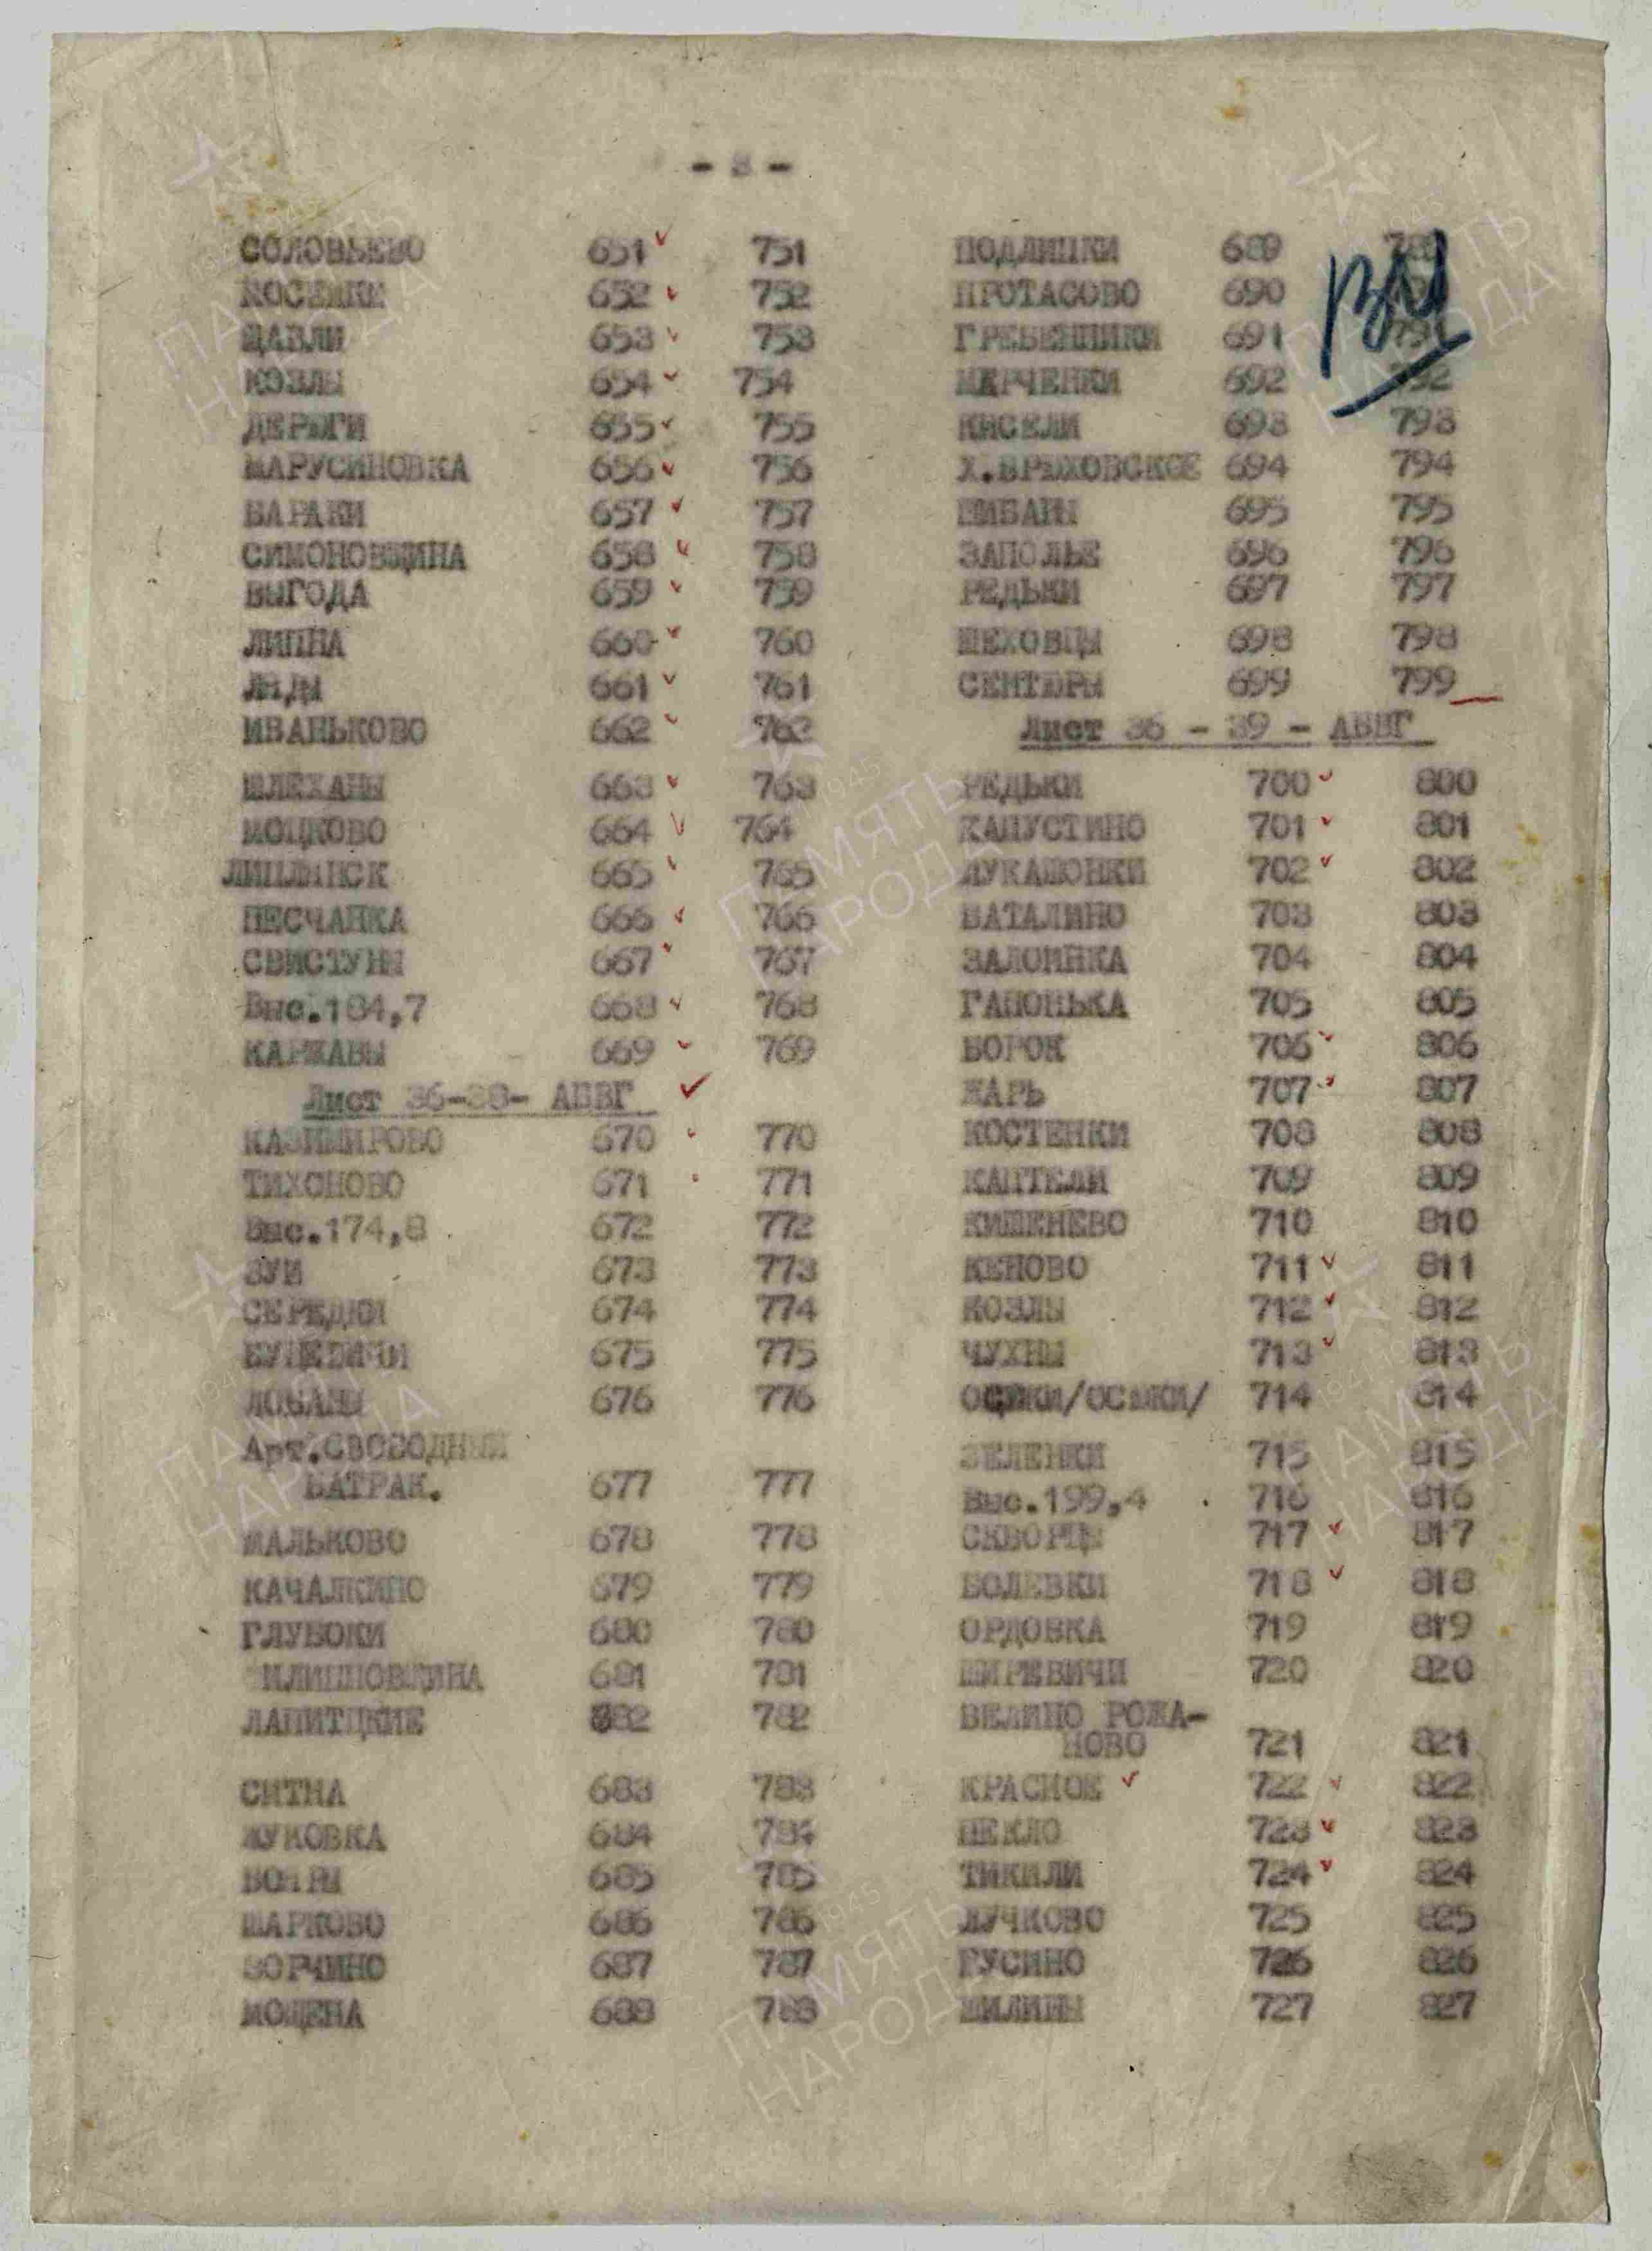 - 8 -
СОЛОВЬЕВО 651 751
652 752
ЩАВЛИ 653 753
КОЗЛЫ 654 754
ДЕРЯГИ 655 755
МАРУСИНОВКА 656 756
БАРАКИ 657 757
СИМОНОВЩИНА 658 758
ВЫГОДА 659 759
ЛИПНА 660 760
ЛЯДЫ 661 761
ИВАНЬКОВО 662 762
ШЛЕХАНЫ 663 763
МОЦКОВО 664 764
665 765
ПЕСЧАНКА 666 766
СВИСТУНЫ 667 767
Выс.184,7 668 768
КАРЖАВЫ 669 769
Лист 36-38- АБВГ
КАЗИМИРОВО 670 770
ТИХОНОВО 671 771
Выс.174,8 672 772
ЗУИ 673 773
674 774
675 775
ЛОБАНЫ 676 776
Арт.СВОБОДНЫЙ
БАТРАК. 677 777
МАЛЬКОВО 678 778
КАЧАЛКИНО 679 779
ГЛУБОКИ 680 780
681 781
ЛАПИТЦКИЕ 682 782
СИТНА 683 783
ЖУКОВКА 684 784
БОЯРЫ 685 785
МАРКОВО 686 786
687 787
МОЩЕНА 688 788
ПОДЛИПКИ 689
ПРОТАСОВО 690
ГРЕБЕННИКИ 691 791
692 792
КИСЕЛИ 693 793
694 794
ШИБАНЫ 695 795
ЗАПОЛЬЕ 696 796
РЕДЬКИ 697 797
ШЕХОВЦЫ 698 798
СЕНТЮРЫ 699 799
Лист 36 - 39 - АБВГ
РЕДЬКИ 700 800
КАПУСТИНО 701 801
ЛУКАШОНКИ 702 802
БАТАЛИНО 703 803
704 804
ГАПОНЬКА 705 805
БОРОК 706 806
ЖАРЬ 707 807
КОСТЕНКИ 708 808
КАПТЕЛИ 709 809
КИШЕНЕВО 710 810
КЕНОВО 711 811
КОЗЛЫ 712 812
ЧУХНЫ 713 813
714 814
ЗЕЛЕНКИ 715 815
Выс.199,4 716 816
СКВОРЦЫ 717 817
БОЛЕВКИ 718 818
ОРДОВКА 719 819
ШИРЕВИЧИ 720 820
ВЕЛИНО РОЖА-
НОВО 721 821
КРАСНОЕ 722 822
ПЕКЛО 723 823
ТИКИЛИ 724 824
ЛУЧКОВО 725 825
ГУСИНО 726 826
ШИЛИНЫ 727 827
ПАМЯТЬ НАРОДА